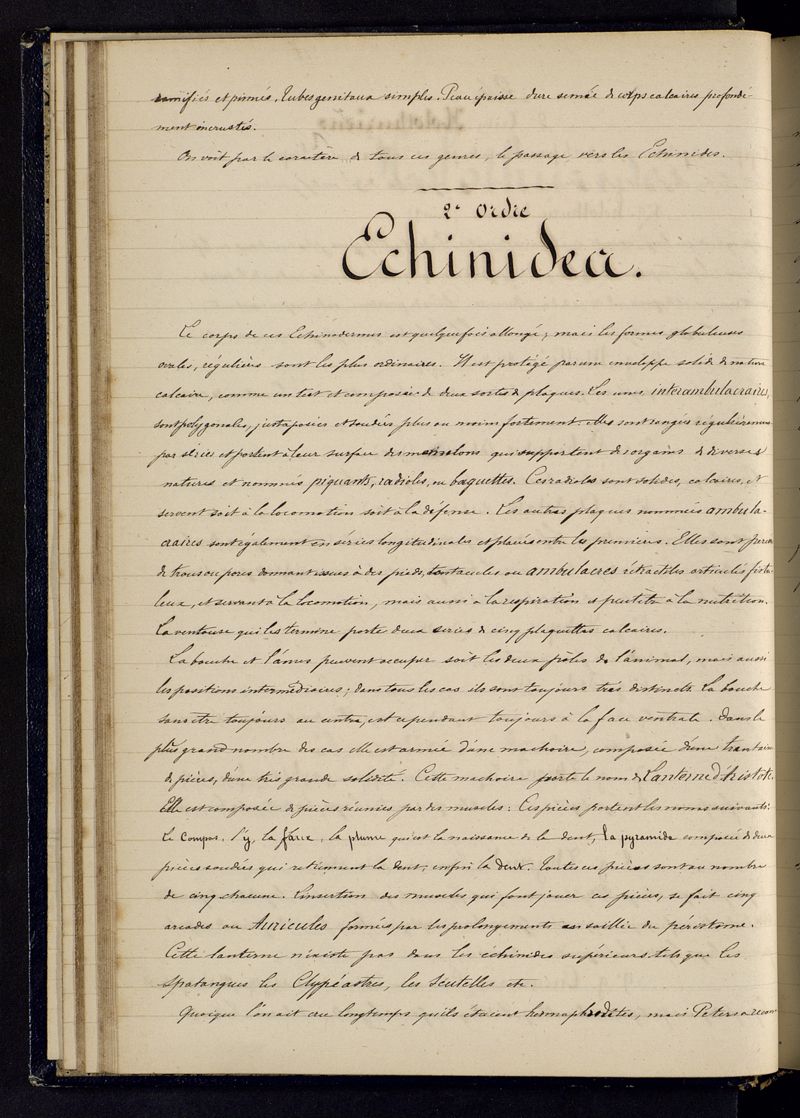 ramifiés et pinnés. Tubes genitaux simples. Peau épaisse dure semée de corps calcaires profondé-
ment incrustés.
On voit par le caractère de tous ces genres, le passage vers les Echinides.
2e Ordre
Echinidea.
Le corps de ces Echinodermes est quelquefois allongé, mais les formes globuleuses
ovales, régulières sont les plus ordinaires. Il est protégé par une enveloppe solide de nature
calcaire, comme un test et composée de deux sortes de plaques. Les unes interambulacraires,
sont polygonales, juxtaposées et soudées plus ou moins fortement. Elles sont rangées régulièrement
par séries et portent à leur surface des mamelons qui supportent des organes de diverses
natures et nommés piquants, radioles, ou baguettes. Ces radioles sont solides, calcaires, et
servent soit à la locomotion soit à la défense. Les autres plaques nommées ambula-
craires sont également en séries longitudinales et placées entre les premières. Elles sont percées
de trous ou pores donnant issues à des pieds, tentacules ou ambulacres rétractiles articulés fistu-
leux, et servant à la locomotion, mais aussi à la respiration et peut être à la nutrition.
La ventouse qui les termine porte deux séries de cinq plaquettes calcaires.
La bouche et l'anus peuvent occuper soit les deux pôles de l'animal, mais aussi
les positions intermédiaires; dans tous les cas ils sont toujours très distincts. La bouche
sans être toujours au centre, est cependant toujours à la face ventrale. Dans le
plus grand nombre des cas elle est armée d'une machoire, composée d'une trentaine
de pièces, d'une très grande solidité. Cette machoire porte le nom de Lanterne d'Aristote.
Elle est composée de pièces réunies par des muscles: Ces pièces portent les noms suivants:
Le Compas, l'y, la faux, la plume qui est la naissance de la dent, la pyramide composée de deux
pièces soudées qui retiennent la dent, enfin la dent. Toutes ces pièces sont au nombre
de cinq chacune. L'insertion des muscles qui font jouer ces pièces, se fait cinq
arcades ou Auricules formées par les prolongements en saillie du péristome.
Cette lanterne n'existe pas dans les échinides supérieurs tels que les
Spatangues les Clypéastres, les Scutelles etc.
Quoique l'on ait cru longtemps qu'ils étaient hermaphrodites, mais Peters a reconn